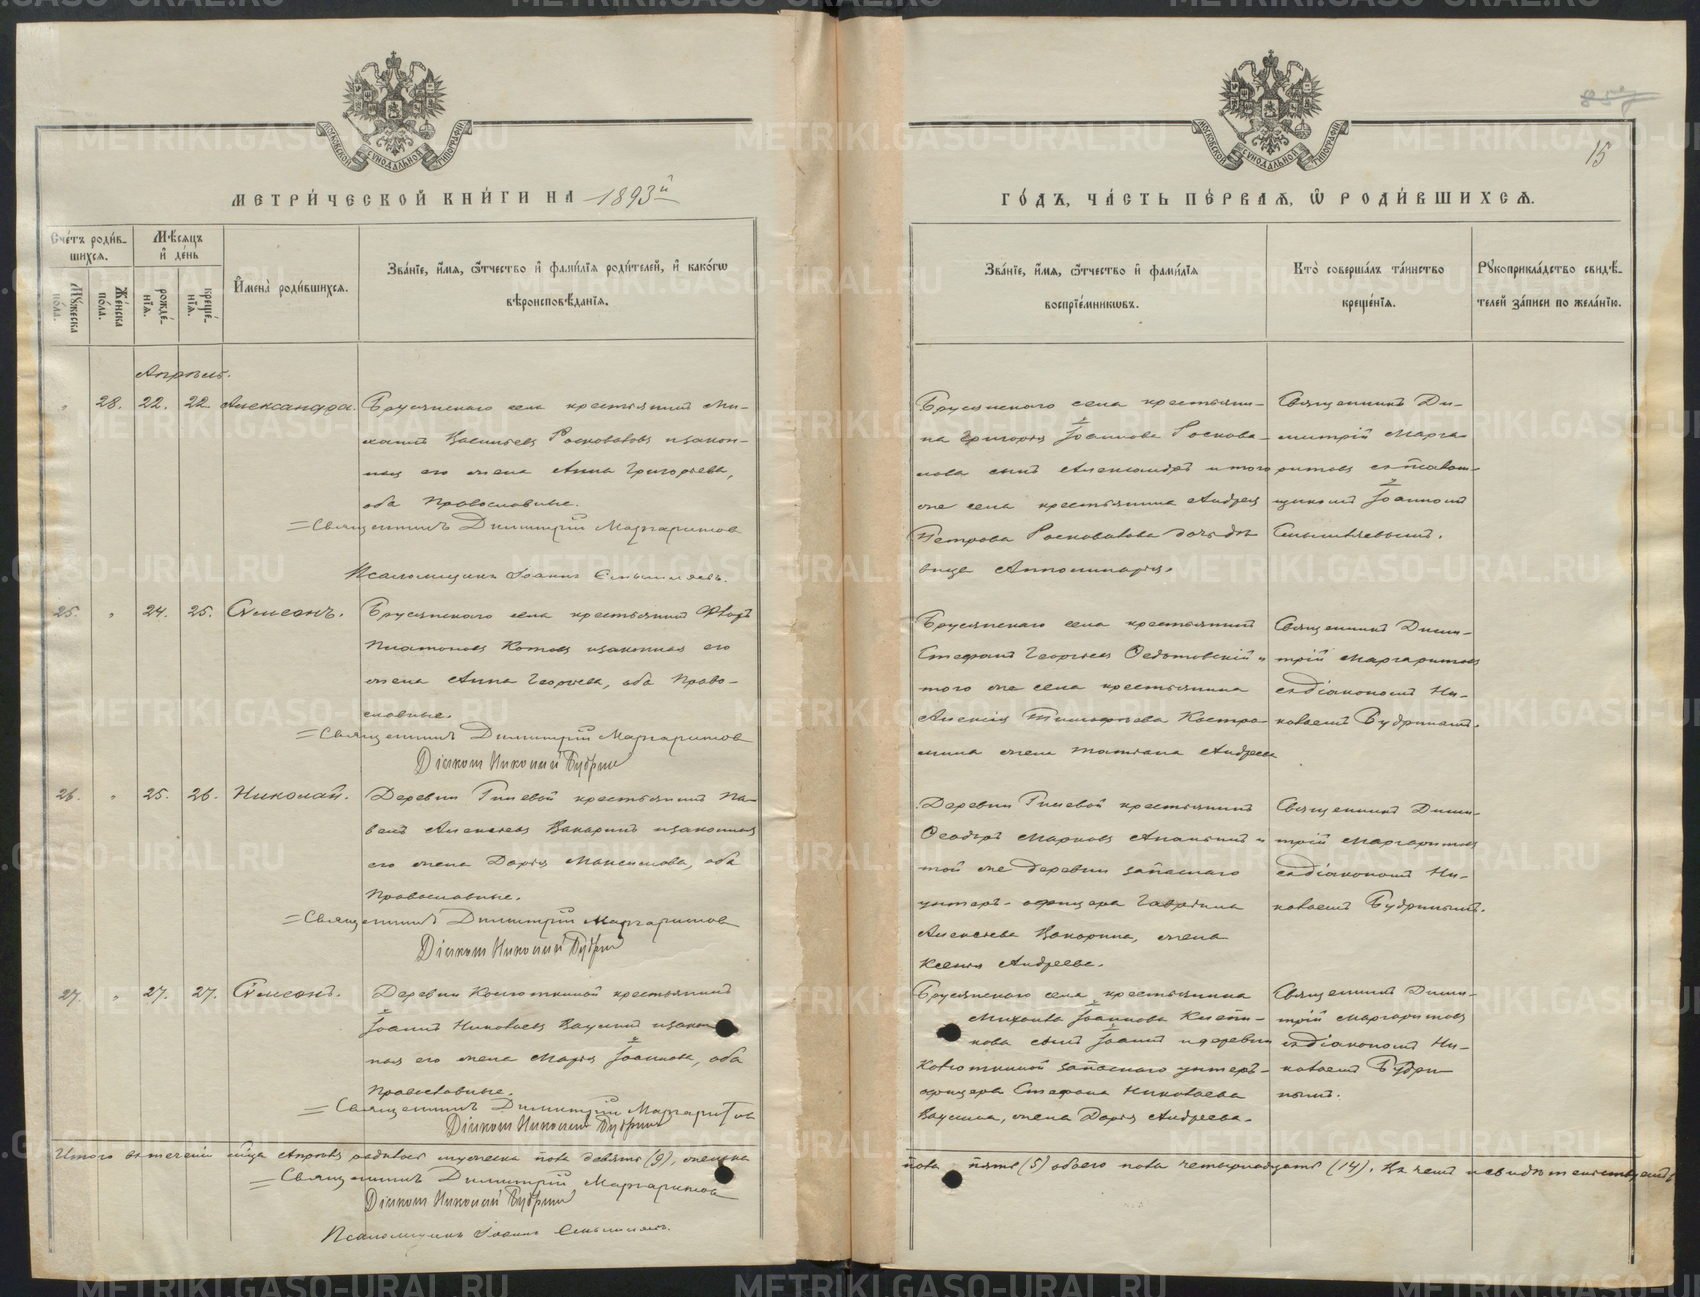 МЕТРИ́ЧЕСКОЙ КНИ́ГИ НА 1893й
Сче́тъ роди́в-
шихсѧ.
Мѣ́сѧцъ
и҆ де́нь
Му́жеска
по́ла.
Же́нска
по́ла.
рожде́-
нїѧ.
креще́-
нїѧ.
И҆мена̀ роди́вшихсѧ.
Зва́нїе, и҆́мѧ, ѻ҆́тчество и҆ фами́лїѧ роди́телей, и҆ како́гѡ
вѣроисповѣ́данїѧ.
Апрѣль.
28. 22. 22. Александра. Брусянскаго села крестьянинъ Ми-
хаилъ Васильевъ Росковаловъ и закон-
ная его жена Анна Григорьева,
оба Православные.
= Священникъ Димитрій Маргаритовъ
Псаломщикъ Іоаннъ
25. " 24. 25. Сѵмеонъ. Брусянскаго села крестьянинъ
Платоновъ Котовъ и законная его
жена Анна Георгіева, оба Право-
славные.
= Священникъ Димитрій Маргаритовъ
Діаконъ Николай Будринъ
26. " 25. 26. Николай. Деревни Гилевой крестьянинъ Па-
велъ Алексеевъ и законная
его жена Дарья Максимова, оба
Православные.
= Священникъ Димитрій Маргаритовъ
Діаконъ Николай Будринъ
27. " 27. 27. Сѵмеонъ. Деревни крестьянинъ
Іоаннъ Николаевъ и закон-
ная его жена Марья Іоаннова, оба
Православные.
= Священникъ Димитрій Маргаритовъ
Діаконъ Николай Будринъ
Итого въ теченіи м-ца Апрѣля родилось мужеска пола девять (9), женска
= Священникъ Димитрій Маргаритовъ
Діаконъ Николай Будринъ
Псаломщикъ Іоаннъ
15
ГО́ДЪ, ЧА́СТЬ ПЕ́РВАѦ, Ѡ҆ РОДИ́ВШИХСѦ.
Зва́нїе, и҆́мѧ, ѻ҆́тчество и҆ фами́лїѧ
воспрїе́мникѡвъ.
Кто̀ соверша́лъ та́инство
креще́нїѧ.
Рꙋкоприкла́дство свидѣ́-
телей за́писи по жела́нїю.
Брусянскаго села крестьяни-
на Григорія Іоаннова Роскова-
лова сынъ Александръ и того
же села крестьянина Андрея
Петрова Росковалова дочь дѣ-
вица Апполинарія.
Священникъ Ди-
митрій Марга-
ритовъ съ псалом-
щикомъ Іоанномъ
Брусянскаго села крестьянинъ
Стефанъ Георгіевъ и
того же села крестьянина
Алексія Тимофеева Костро-
мина жена Татіана Андреева
Священникъ Дими-
трій Маргаритовъ
съ діакономъ Ни-
колаемъ Будринымъ.
Деревни Гилевой крестьянинъ
Ѳеодоръ Марковъ и
той же деревни запаснаго
унтеръ-офицера Гавріила
Алексеева жена
Ксенія Андреева.
Священникъ Дими-
трій Маргаритовъ
съ діакономъ Ни-
колаемъ Будринымъ.
Брусянскаго села крестьянина
Михаила Іоаннова
сынъ Іоаннъ и деревни
запаснаго унтеръ-
офицера Стефана Николаева
жена Дарья Андреева.
Священникъ Дими-
трій Маргаритовъ
съ діакономъ Ни-
колаемъ Будри-
нымъ.
пола пять (5) обоего пола четырнадцать (14). Въ чемъ и свидѣтельствуемъ